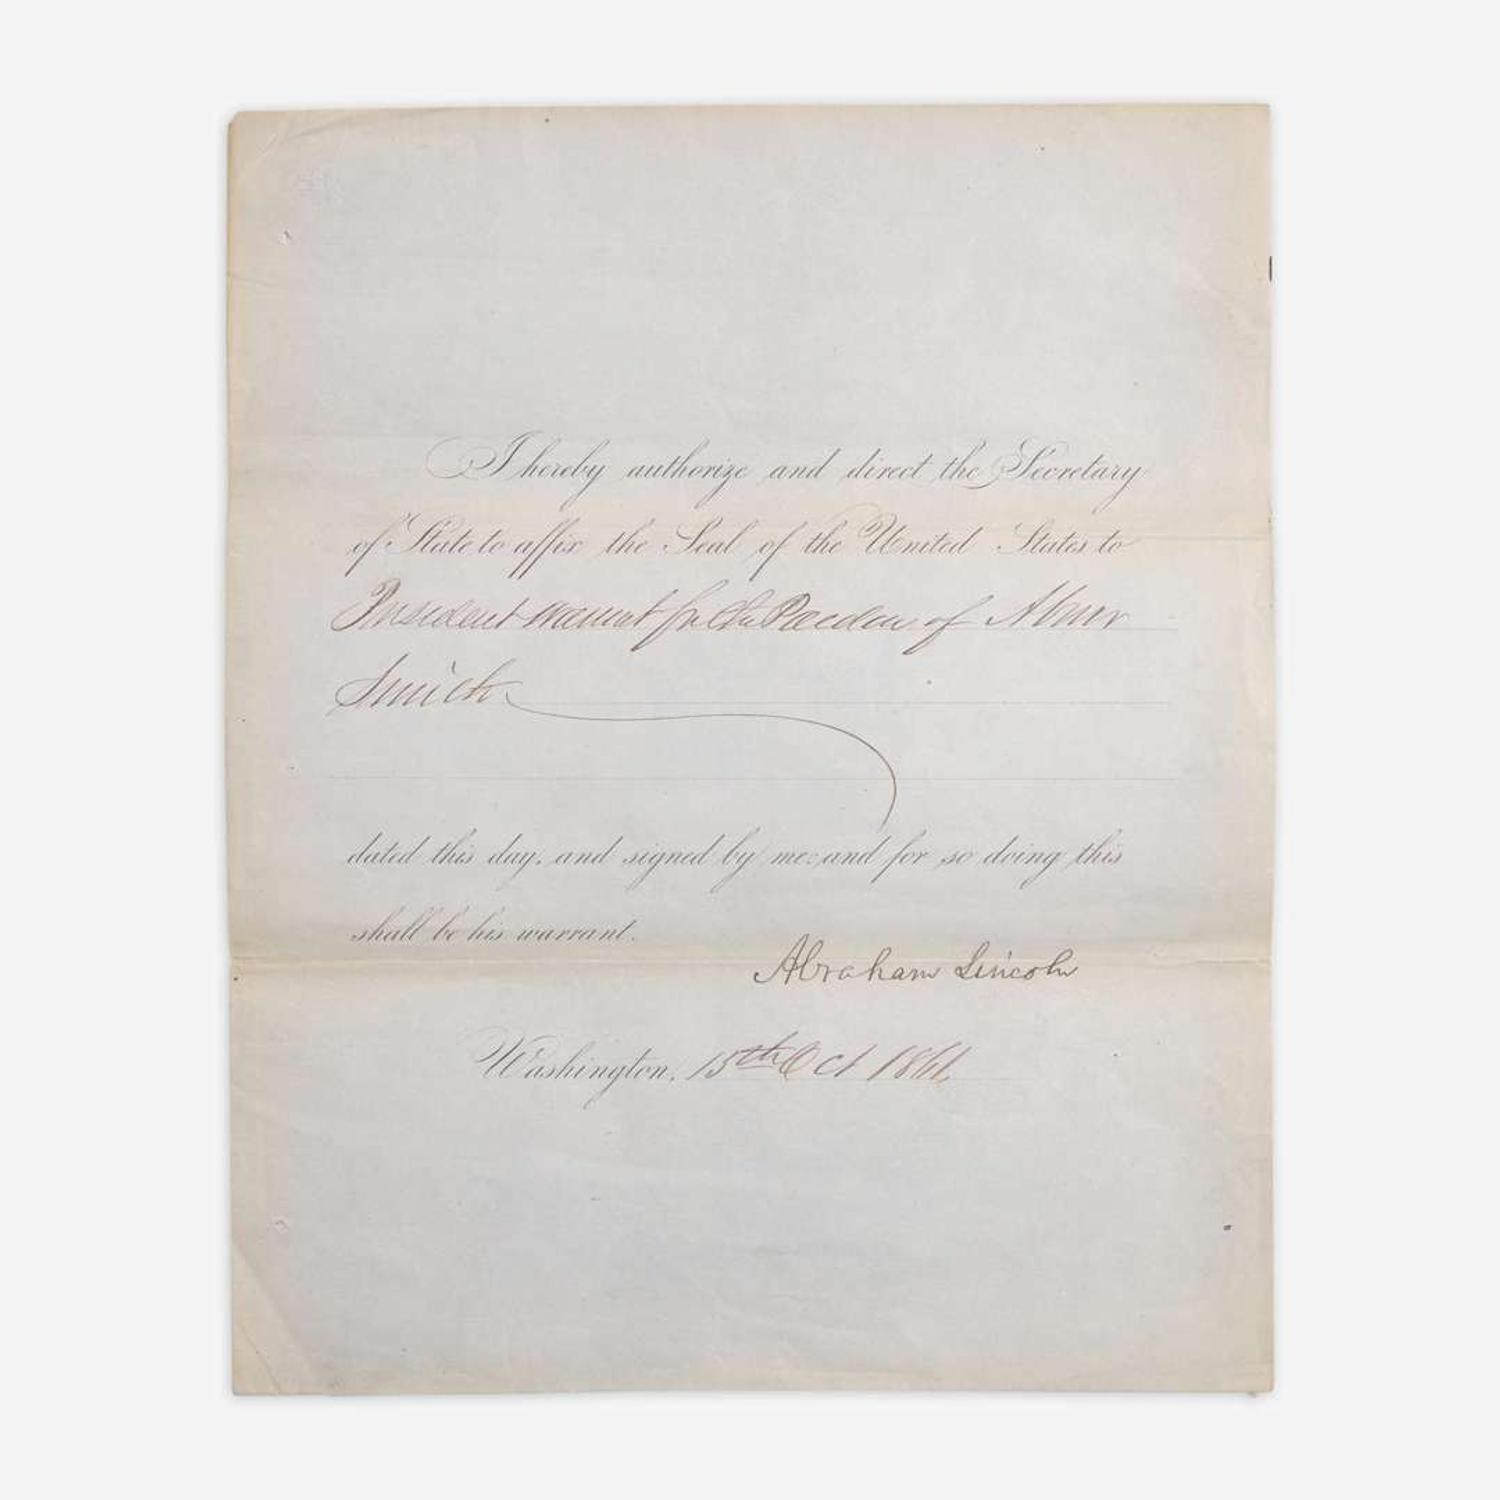 I hereby authorize and direct the Secretary
of State to affix the Seal of the United States to
President warrant for the Pardon of Abner
Smith
dated this day, and signed by me: and for so doing this
shall be his warrant.
Abraham Lincoln
Washington, 15th Oct 1861.